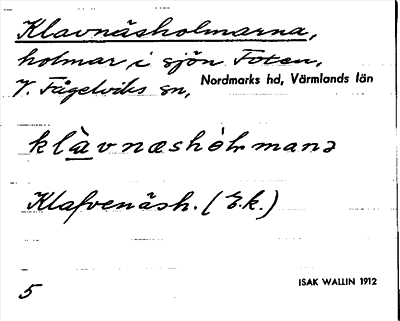 Klavnäsholmarna,
holmar i sjön Foten,
V. Fågelviks sn, Nordmarks hd, Värmlands län
klàvnæshòlmanə
Klafvenäsh. (E.k.)
5 ISAK WALLIN 1912